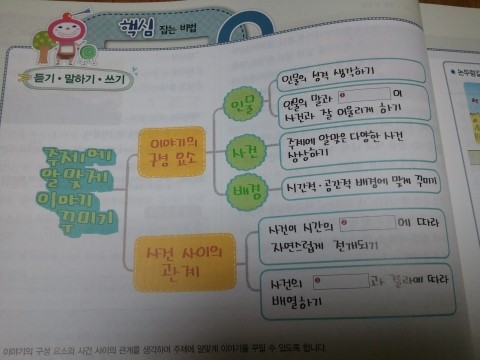 핵심 잡는 비법
듣기·말하기·쓰기
주제에
알맞게
이야기
꾸미기
이야기의
구성 요소
인물
인물의 성격 생각하기
인물의 말과 이
사건과 잘 어울리게 하기
사건
주제에 알맞은 다양한 사건
상상하기
배경
시간적·공간적 배경에 맞게 꾸미기
사건 사이의
관계
사건이 시간의 에 따라
자연스럽게 전개되기
사건의 과 결과에 따라
배열하기
이야기의 구성 요소와 사건 사이의 관계를 생각하며 주제에 알맞게 이야기를 꾸밀 수 있도록 합니다.